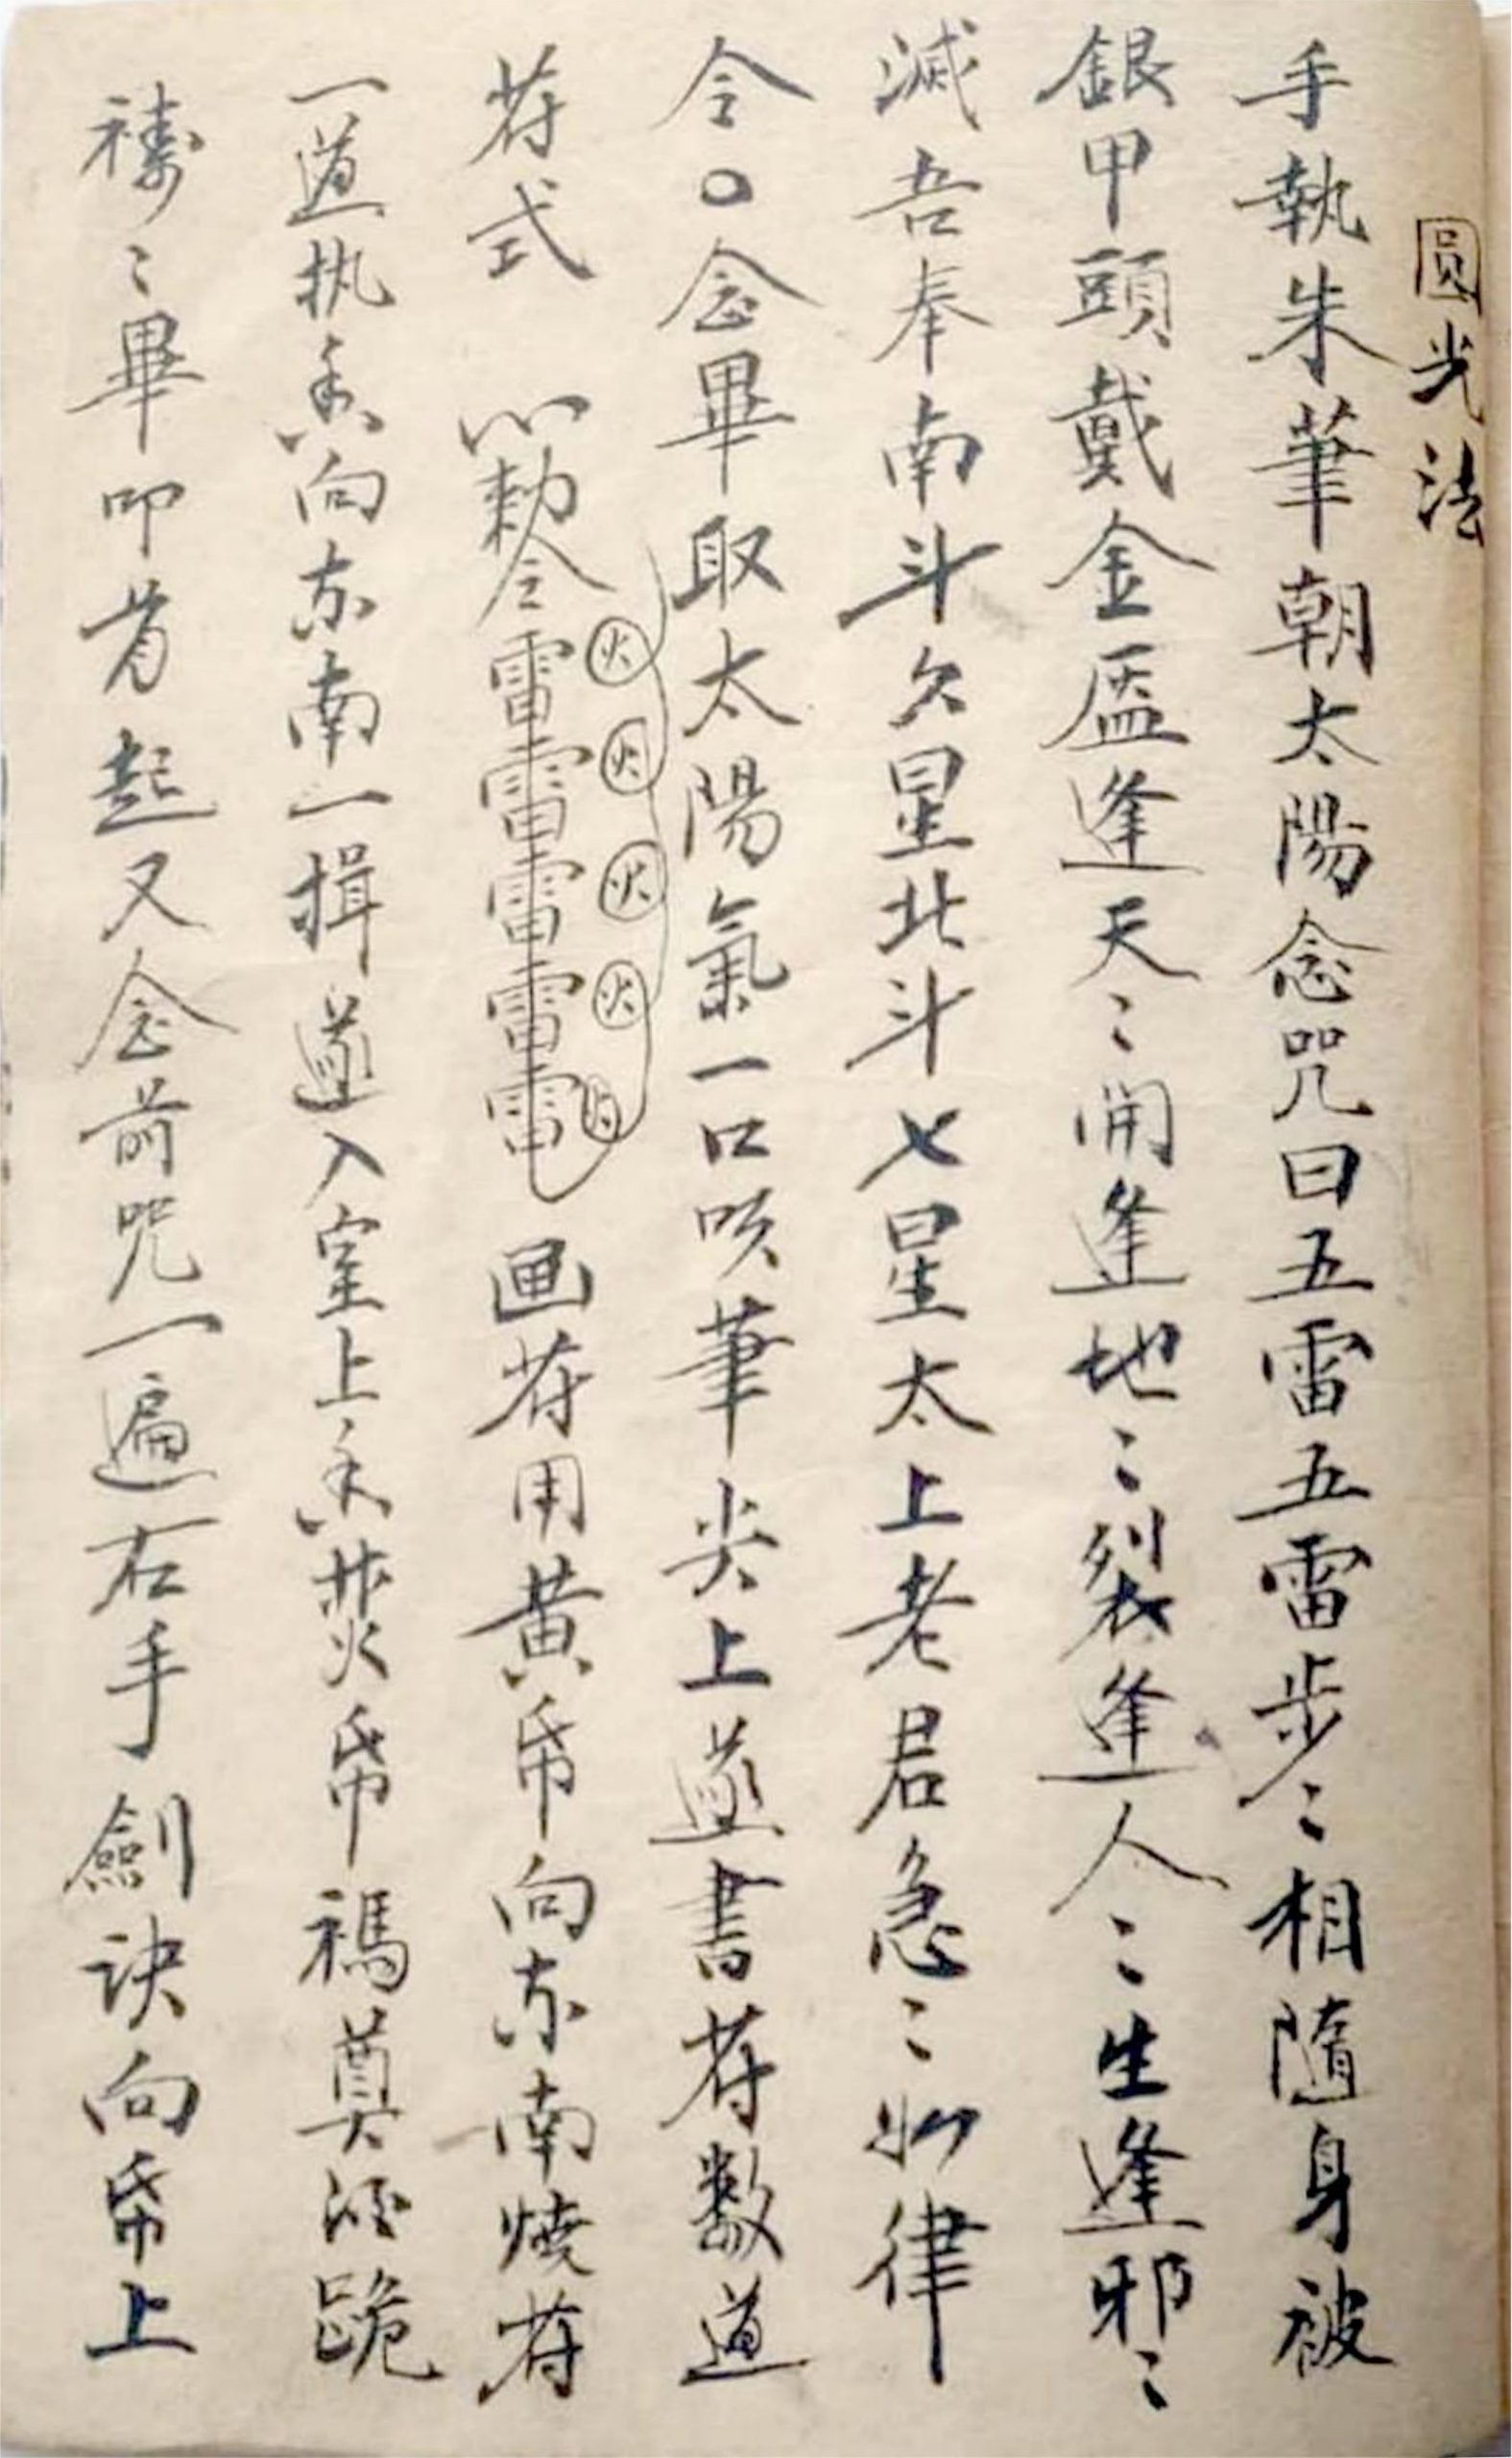 圓光法
手執朱筆朝太陽念咒曰五雷五雷步〻相隨身被
銀甲頭戴金盔逢天〻開逢地〻裂逢人〻生逢邪〻
滅吾奉南斗六星北斗七星太上老君急〻如律
令〇念畢取太陽氣一口吹筆尖上遂書符数道
符式 勅令雷雷雷雷雷火火火火 画符用黃帋向东南燒符
一道执香向东南一揖遂入室上香焚帋禡奠酒跪
禱〻畢叩首起又念前咒一遍右手劍訣向帋上